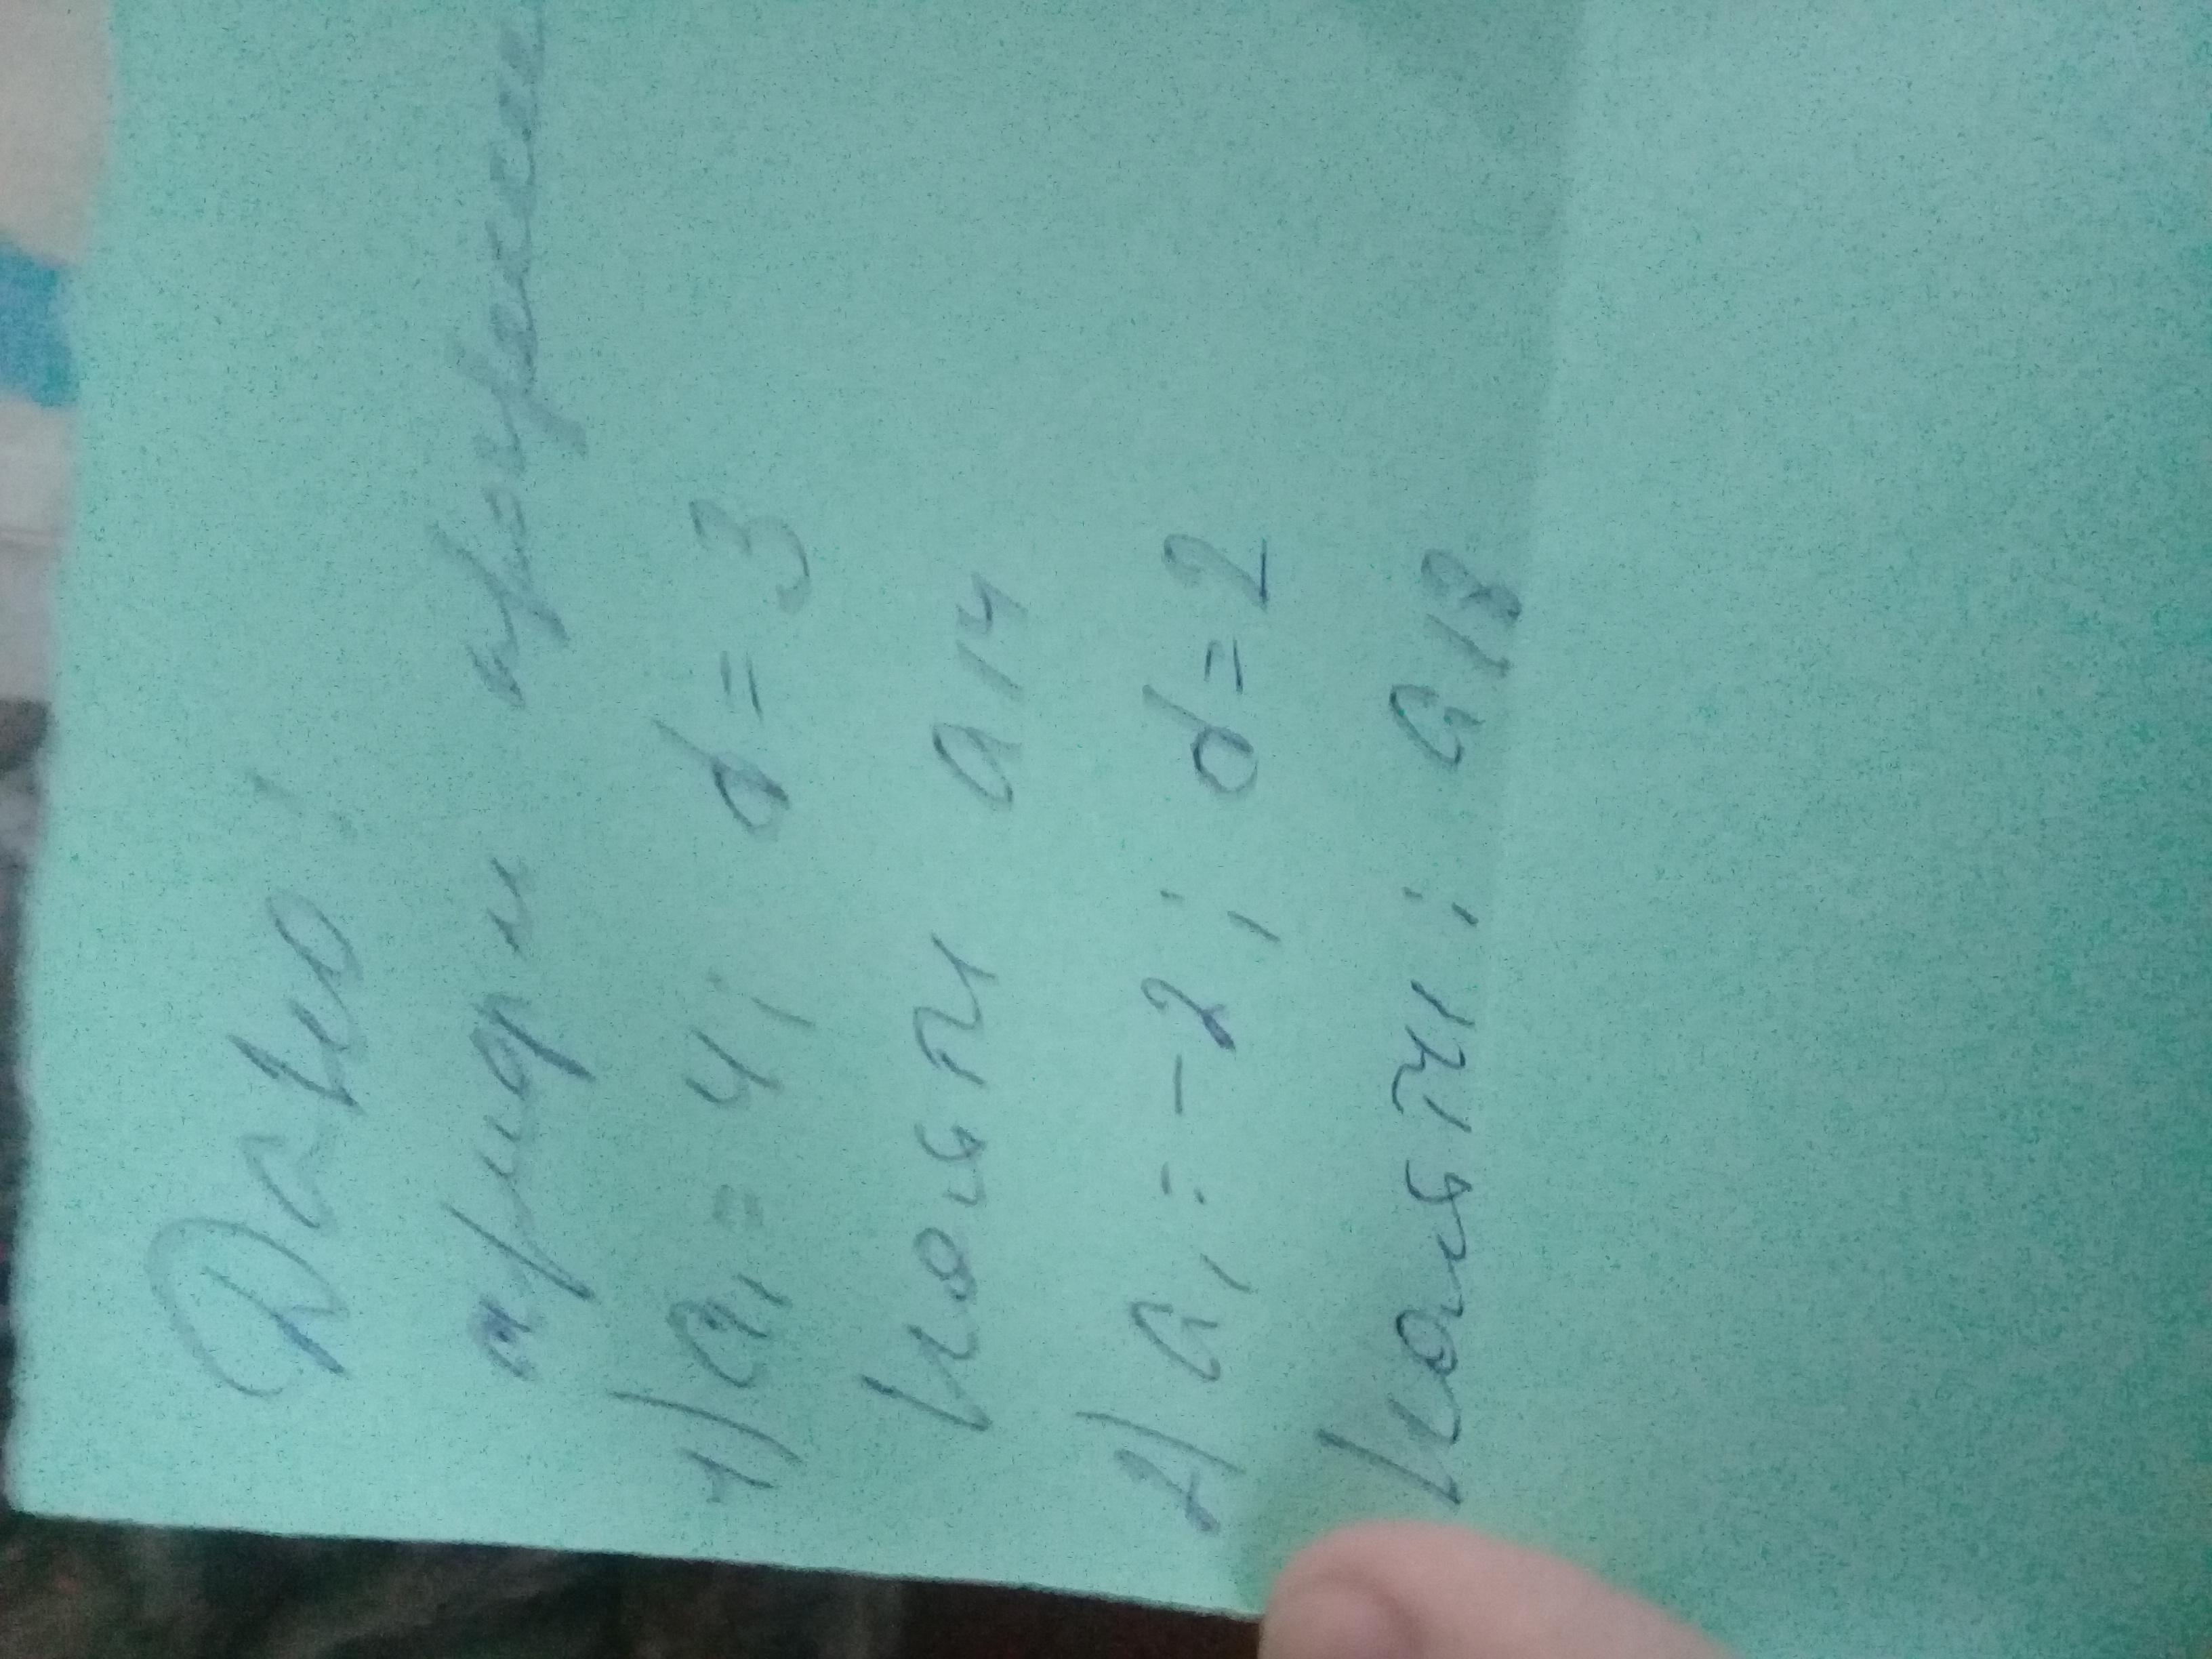 Дано:
арифм прогрессия
1) a1 = 4; d = 3
Найти a14
2) a1 = -2; d = 2
Найти: a18